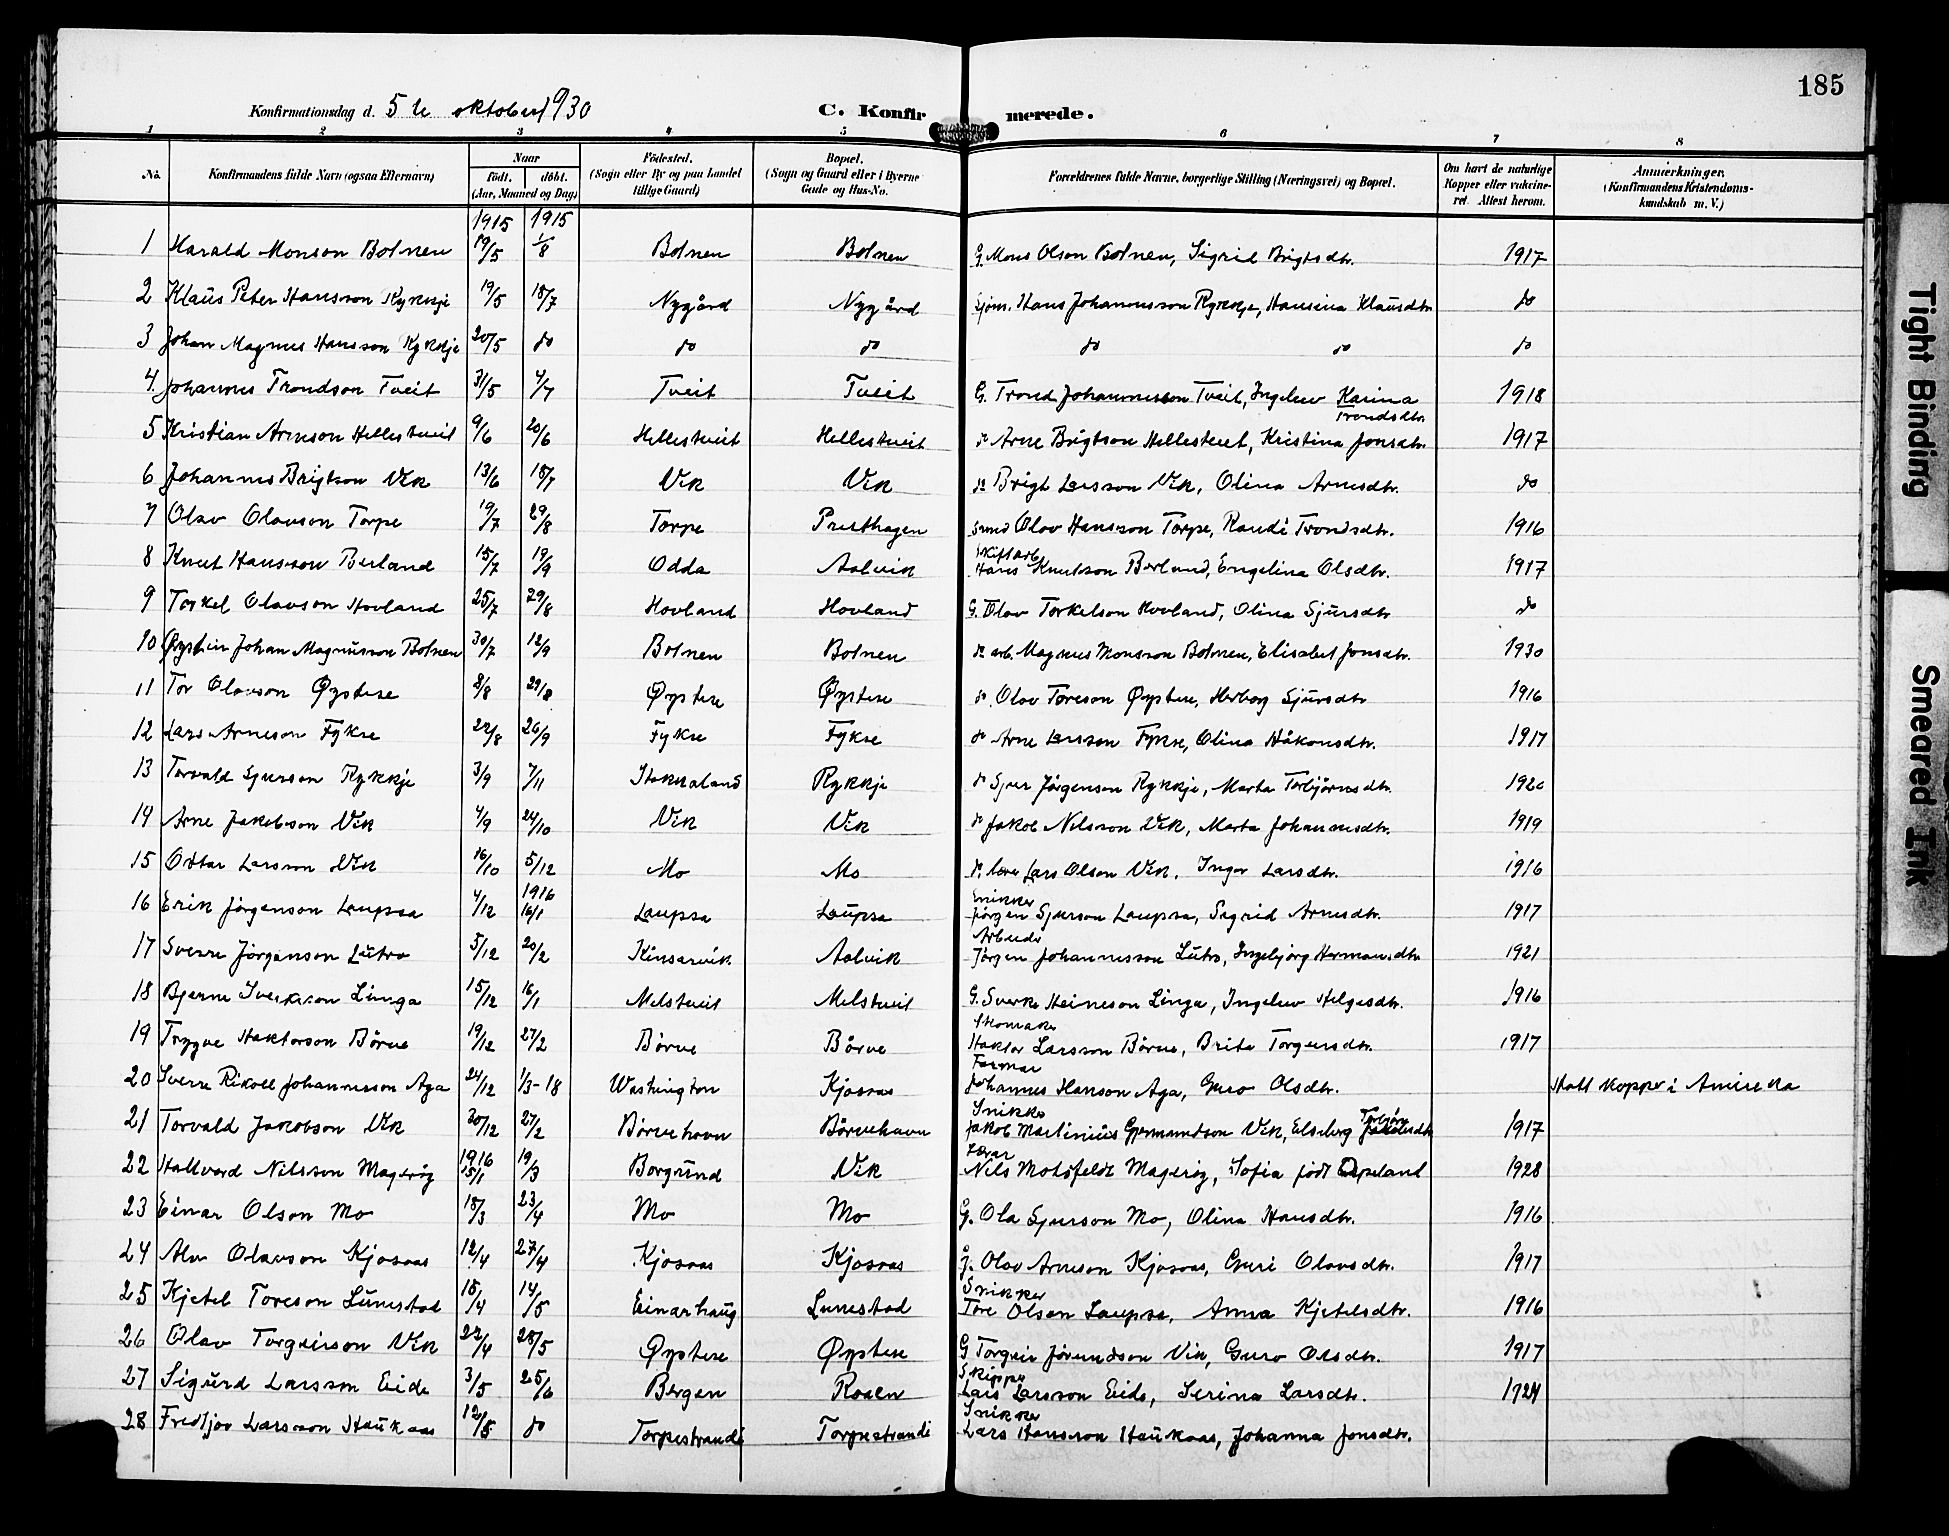 185
Konfirmationsdag d. 5te oktober 1930 C. Konfirmerede.
1 2 3 4 5 6 7 8
No. Konfirmandens fulde Navn (ogsaa Efternavn) Naar født. døbt. (Aar, Maaned og Dag) Fødested. (Sogn eller By og paa Landet tillige Gaard) Bopæl. (Sogn og Gaard eller i Byerne Gade og Hus-No. Forældrenes fulde Navne, borgerlige Stilling (Næringsvei) og Bopæl. Om havt de naturlige Kopper eller vakcineret. Attest herom. Anmærkninger. (Konfirmandens Kristendomskundskab m. V.)
1915 1915
1 Harald Monson Botnen 19/5 1/8 Botnen Botnen G. Mons Olson Botnen, Sigrid Brigtsdtr. 1917
2 Klaus Peter Hansson Rykkje 19/5 18/7 Nygård Nygård Sjøm. Hans Johannusson Rykkje, Hansina Klausdtr do
3 Johan Magnus Hansson Rykkje 20/5 do do do do do do
4. Johannes Trondson Tveit 31/5 4/7 Tveit Tveit G. Trond Johannesson Tveit, Ingelev Karina Trondsdtr. 1918
5 Kristian Arneson Hellestveit 9/6 20/6 Hellestveit Hellestveit do Arne Brigtson Hellestveit, Kristina Jonsdtr. 1917
6 Johannes Brigtson Vik 13/6 18/7 Vik Vik do Brigt Larsson Vik, Olina Arnesdtr. do
7 Olav Olavson Torpe 19/7 29/8 Torpe Presthagen Smed Olav Hansson Torpe, Randi Trondsdtr. 1916
8 Knut Hansson Berland 15/7 19/9 Odda Aalvik Skiftarb. Hans Knutson Berland, Engelina Olsdtr. 1917
9 Torkel Olavson Hovland 25/7 29/8 Hovland Hovland G. Olav Torkelson Hovland, Olina Sjursdtr do
10 Øystein Johan Magnusson Botnen 30/7 12/9 Botnen Botnen do arb. Magnus Monsson Botnen, Elisabet Jonsdtr. 1930
11 Tor Olavson Øystese 8/8 29/8 Øystese Øystese do. Olav Toreson Øystese, Herborg Sjursdtr 1916
12 Lars Arneson Fykse 22/8 26/9 Fykse Fykse do Arne Larsson Fykse, Olina Håkonsdtr. 1917
13 Torvald Sjurson Rykkje 3/9 7/11 Stekkaland Rykkje do Sjur Jørgenson Rykkje, Marta Torbjørnsdtr. 1920
14 Arne Jakobson Vik 4/9 24/10 Vik Vik do Jakob Nilsson Vik, Marta Johannesdtr. 1919
15 Ottar Larsson Vik 16/10 5/12 Mo Mo Lars Olson Vik, Inga Larsdtr. 1916
1916
16 Erik Jørgenson Laupsa 4/12 16/1 Laupsa Laupsa Snikker Jørgen Sjurson Laupsa, Sigrid Arnesdtr. 1917
17 Sverre Jørgenson Lutro 5/12 20/2 Kinsarvik Aalvik Arbeider Jørgen Johannesson Lutro, Ingebjørg Hermansdtr 1921
18 Bjarne Sverkeson Linga 15/12 16/1 Melstveit Melstveit G. Sverke Heineson Linga, Ingelev Helgesdtr. 1916
19 Trygve Haktorson Børve 19/12 27/2 Børve Børve Skomaker Haktor Larsson Børve, Brita Torgersdtr. 1917
20 Sverre Rikoll Johannesson Aga 24/12 1/3-18 Washington Kjosaas Farmar Johannes Hanson Aga, Guro Olsdtr. Hatt kopper i Amerika
21 Torvald Jakobson Vik 30/12 27/2 Børvehavn Børvehavn Snikker Jakob Martinius Gjermundson Vik, Elseberg 1917
1916
22 Hallvard Nilsson Magerøy 15/1 19/3 Borgund Vik Lærar Nils Motsfeldt Magerøy, Sofia født Espeland 1928
23 Einar Olson Mo 18/3 23/4 Mo Mo G. Ola Sjurson Mo, Olina Hansdtr. 1916
24 Alv Olavson Kjosaas 12/4 27/4 Kjosaas Kjosaas G. Olav Arneson Kjosaas, Guri Olavsdtr. 1917
25 Kjetel Toreson Lunestad 15/4 14/5 Einarhaug Lunestad Snikker Tore Olson Laupsa, Anna Kjetelsdtr. 1916
26 Olav Torgeirson Vik 22/4 28/5 Øystese Øystese G Torgeir Jørundson Vik, Guro Olsdtr. 1917
27 Sigurd Larsson Eide 3/5 25/6 Bergen Rosen Skipper Lars Larsson Eide, Serina Larsdtr. 1924
28 Fredtjov Larsson Haukaas 12/5 do Torpestrandi Torpestrandi Snikker Lars Hansson Haukaas, Johanna Jonsdtr.
Tight Binding
Smeared Ink